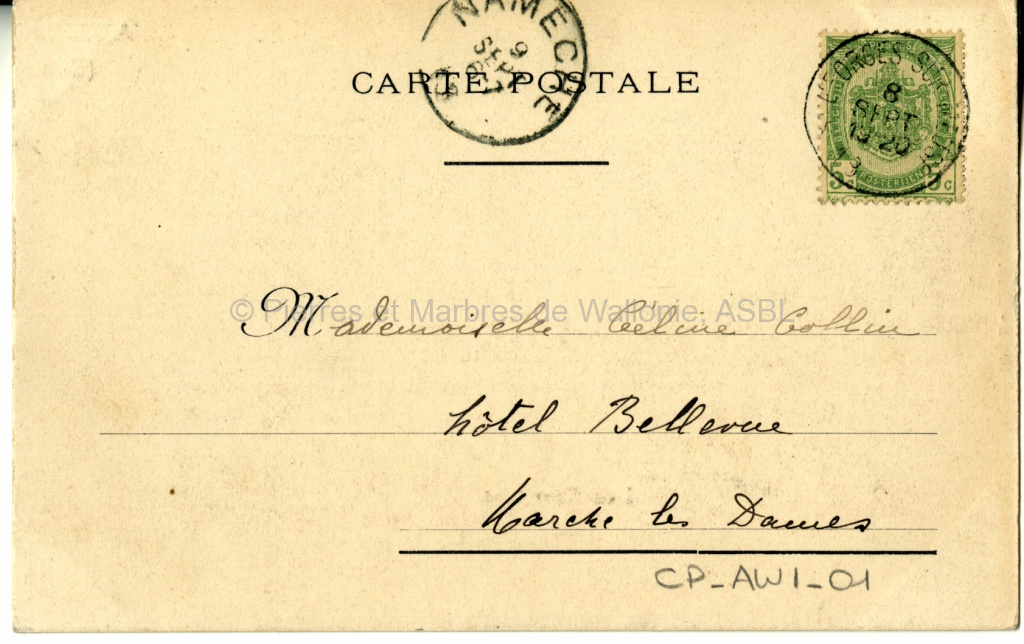 NAMECHE
9
SEPT
CARTE POSTALE
8
SEPT
POSTERIJEN
5 5c
© Pierres et Marbres de Wallonie, ASBL
Mademoiselle Céline Collin
hôtel Bellevue
Marche les Dames
CP_AW1_01